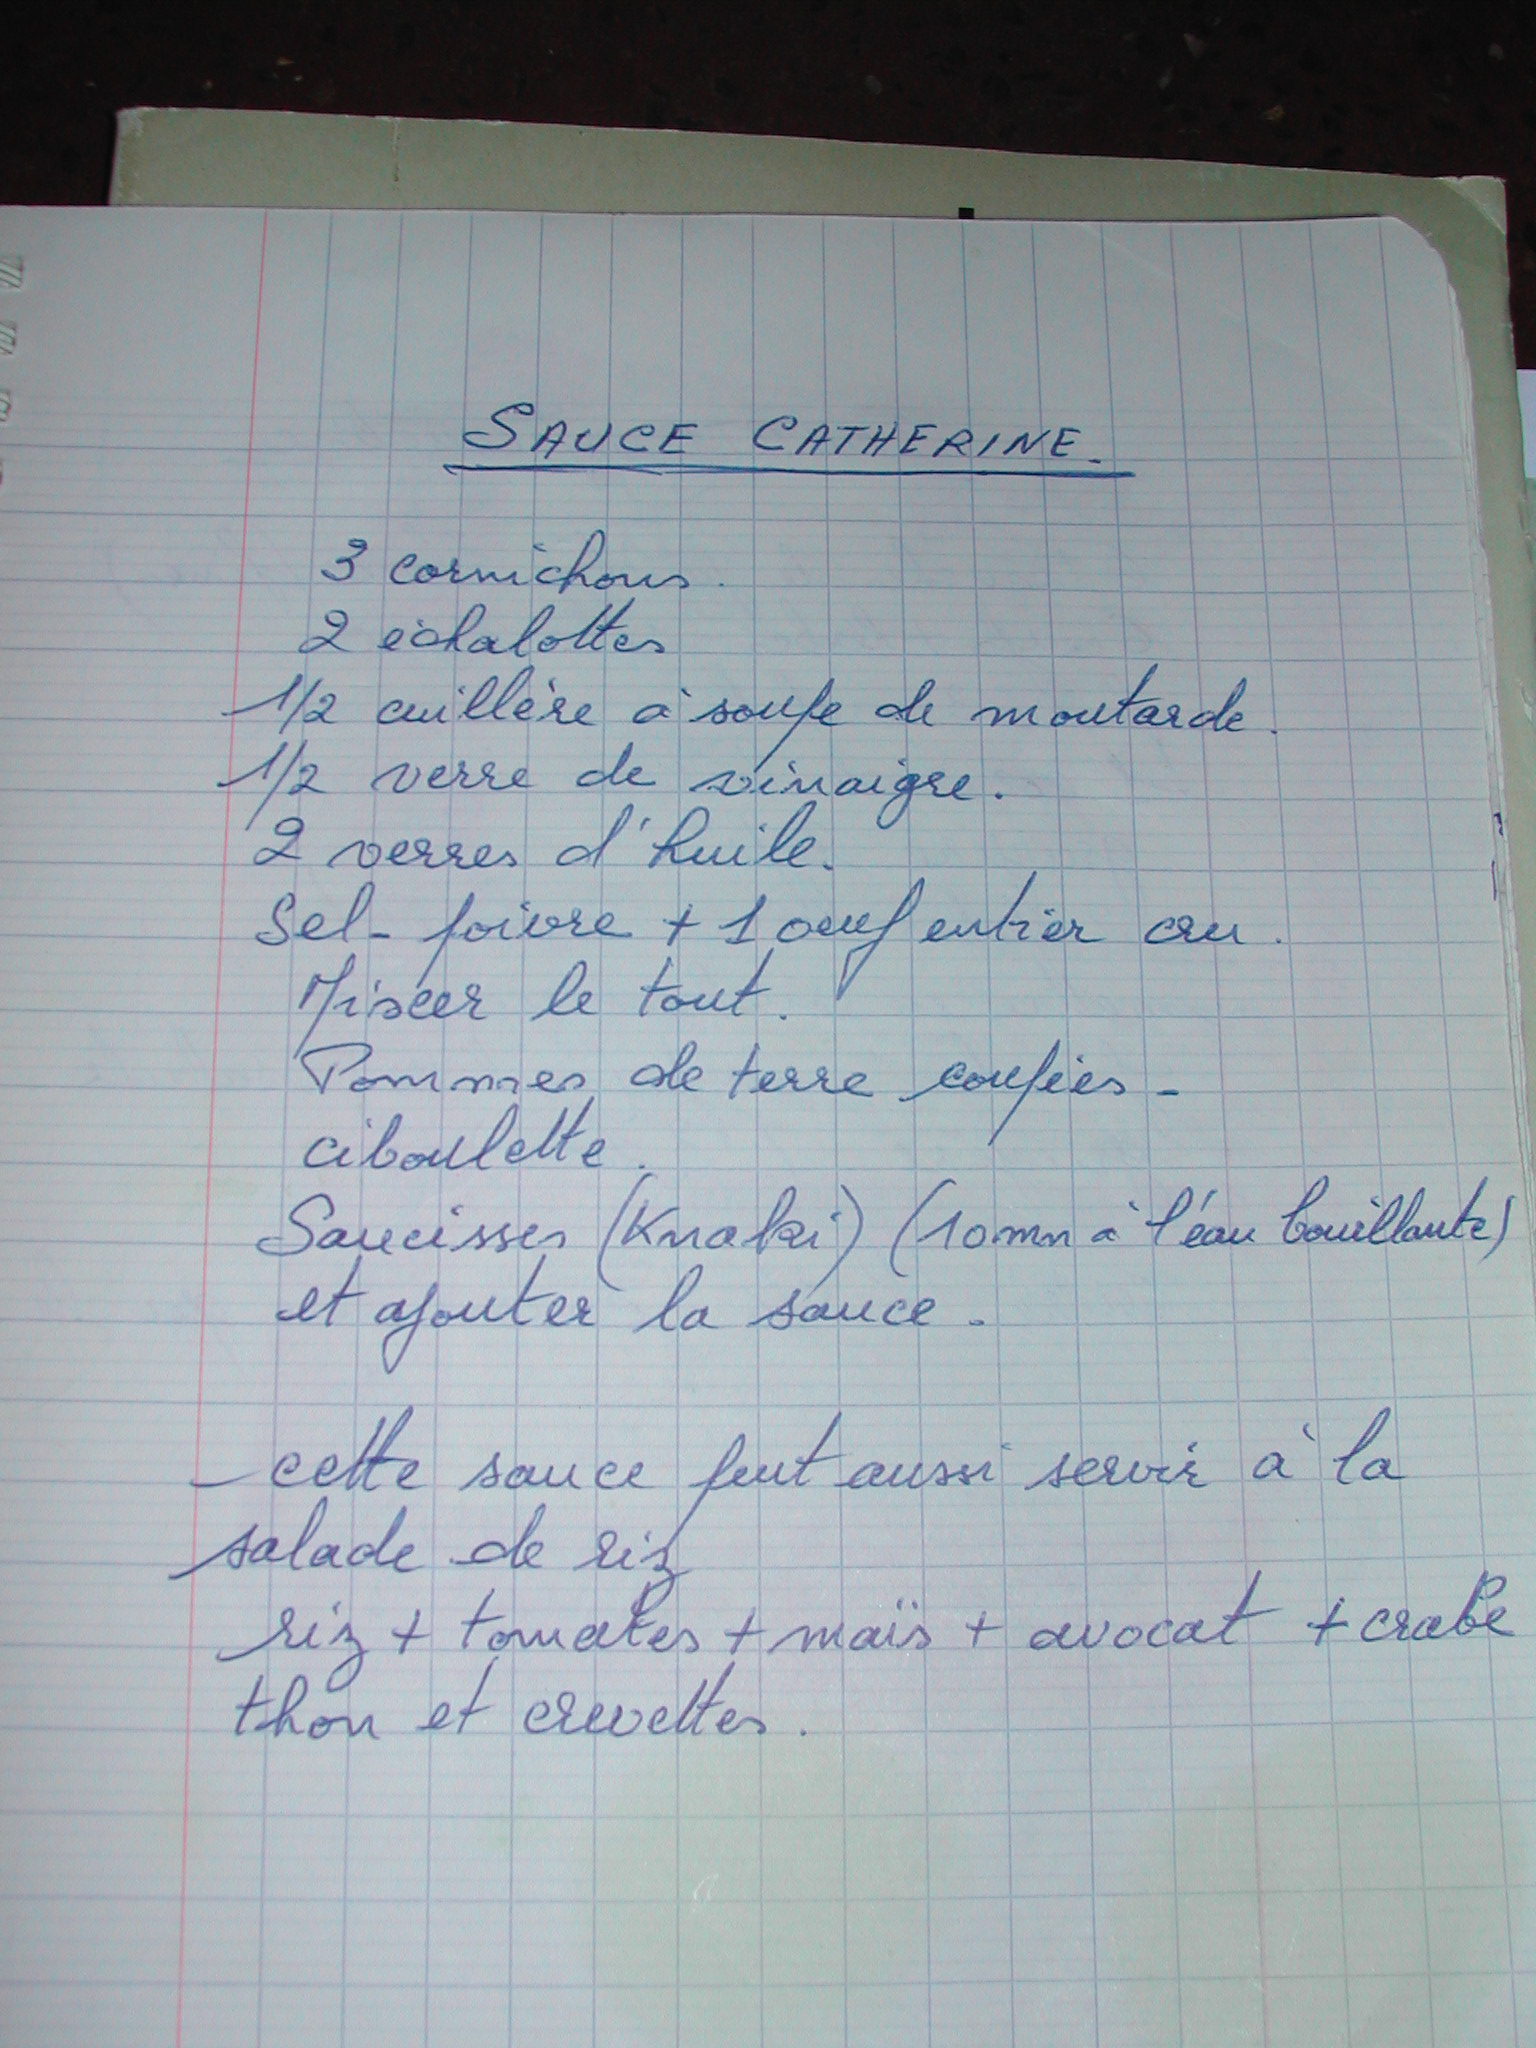 SAUCE CATHERINE.
3 cornichons.
2 échalottes
1/2 cuillère à soupe de moutarde.
1/2 verre de vinaigre.
2 verres d'huile.
Sel - poivre + 1 oeuf entier cru.
Mixer le tout.
Pommes de terre coupées -
ciboulette.
Saucisses (Knaki) (10mn à l'éau bouillante)
et ajouter la sauce.
- cette sauce peut aussi servir à la
salade de riz
riz + tomates + maïs + avocat + crabe
thon et crevettes.